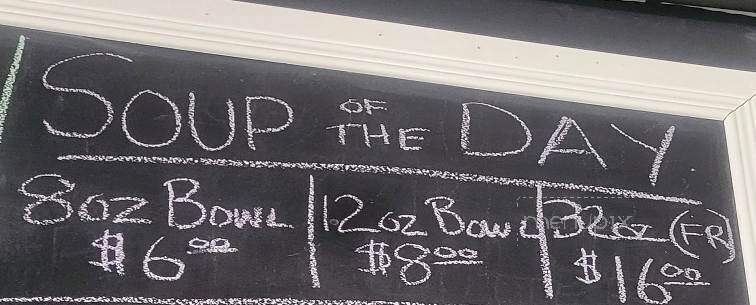 SOUP OF THE DAY
8oz BOWL | 12oz BOWL | 32oz (FR)
$6.00 | $8.00 | $16.00